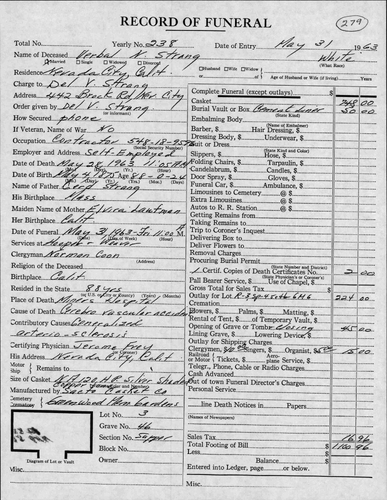 RECORD OF FUNERAL
279
Total No.
Yearly No. 238
Date of Entry May 31 1963
Name of Deceased Verbal N. Strang
White
(What Race)
Married
Single
Widowed
Divorced
Husband
Wife
Widow
Residence Nevada City, Calif.
Age of Husband or Wife (if living)
Charge to Del V. Strang
Address 442 Brock Rd., Nev City
Order given by Del V. Strang
How Secured phone
If Veteran, Name of War No
Occupation Contractor
(Social Security Number)
Employer and Address Self Employed
Date of Death May 28, 1963
Date of Birth
Age 88-0-24
Name of Father Strang
His Birthplace Mass
Maiden Name of Mother Elvira
Her Birthplace Calif
Date of Funeral May 31 1963 11:00
(Hour)
Services at
Clergyman Norman Coon
Religion of the Deceased
Birthplace Calif
Resided in the State 88 yrs
Place of Death Miners Hospital
Cause of Death Cerebro vascular accident
Contributory Causes Generalized
arterio-sclerosis
Certifying Physician Jerome Frey
His Address Nevada City, Calif
Motor
Ship
Remains
to
Size of Casket Silver Shadow
Manufactured by Casket Co
Cemetery
Crematory
Mem. Gardens
Lot No. 3
Grave No. 46
Section No.
Block No.
Owner
Diagram of Lot or Vault
Misc.
Complete Funeral (except outlays) $
Casket 748 00
Burial Vault or Box liner 50 00
(State Kind)
Embalming Body
(Name of Embalmer)
Barber, $ Hair Dressing, $
Dressing Body, $ Underwear, $
Suit or Dress
(State Kind and Color)
Slippers, $ Hose, $
Folding Chairs, $ Tarpaulin, $
Candelabrum, $ Candles, $
Door Spray, $ Gloves, $
Funeral Car, $ Ambulance, $
Limousines to Cemetery @ $
Extra Limousines @ $
Autos to R. R. Station @ $
Getting Remains
Taking Remains
Trip to Coroner's Inquest
Delivering Box to
Deliver Flowers to
Removal Charges
Procuring Burial Permit
(State Number and District)
1 Certif. Copies of Death Certificates No. 2 00
Pall Bearer Service, $ Use of Chapel, $
Gross Total for Sales Tax $
Outlay for Lot 224 00
Flowers, $ Palms, $ Matting, $
Rental of Tent, $ of Temporary Vault, $
Opening of Grave or Tomb Closing 45 00
Lining Grave, $ Lowering Device, $
Outlay for Shipping Charges
Clergyman, $ Singers, $ Organist, $ 15 00
Railroad
or Motor Tickets, $
Aero-
plane Service, $
Telegr., Phone, Cable or Radio Charges
Cash Advanced
Out of town Funeral Director's Charges
Personal Service
line Death Notices in Papers
(Names of Newspapers)
Sales Tax 16 96
Total Footing of Bill $ 1100 96
Less
Balance
Entered into Ledger, page or below.
Misc.